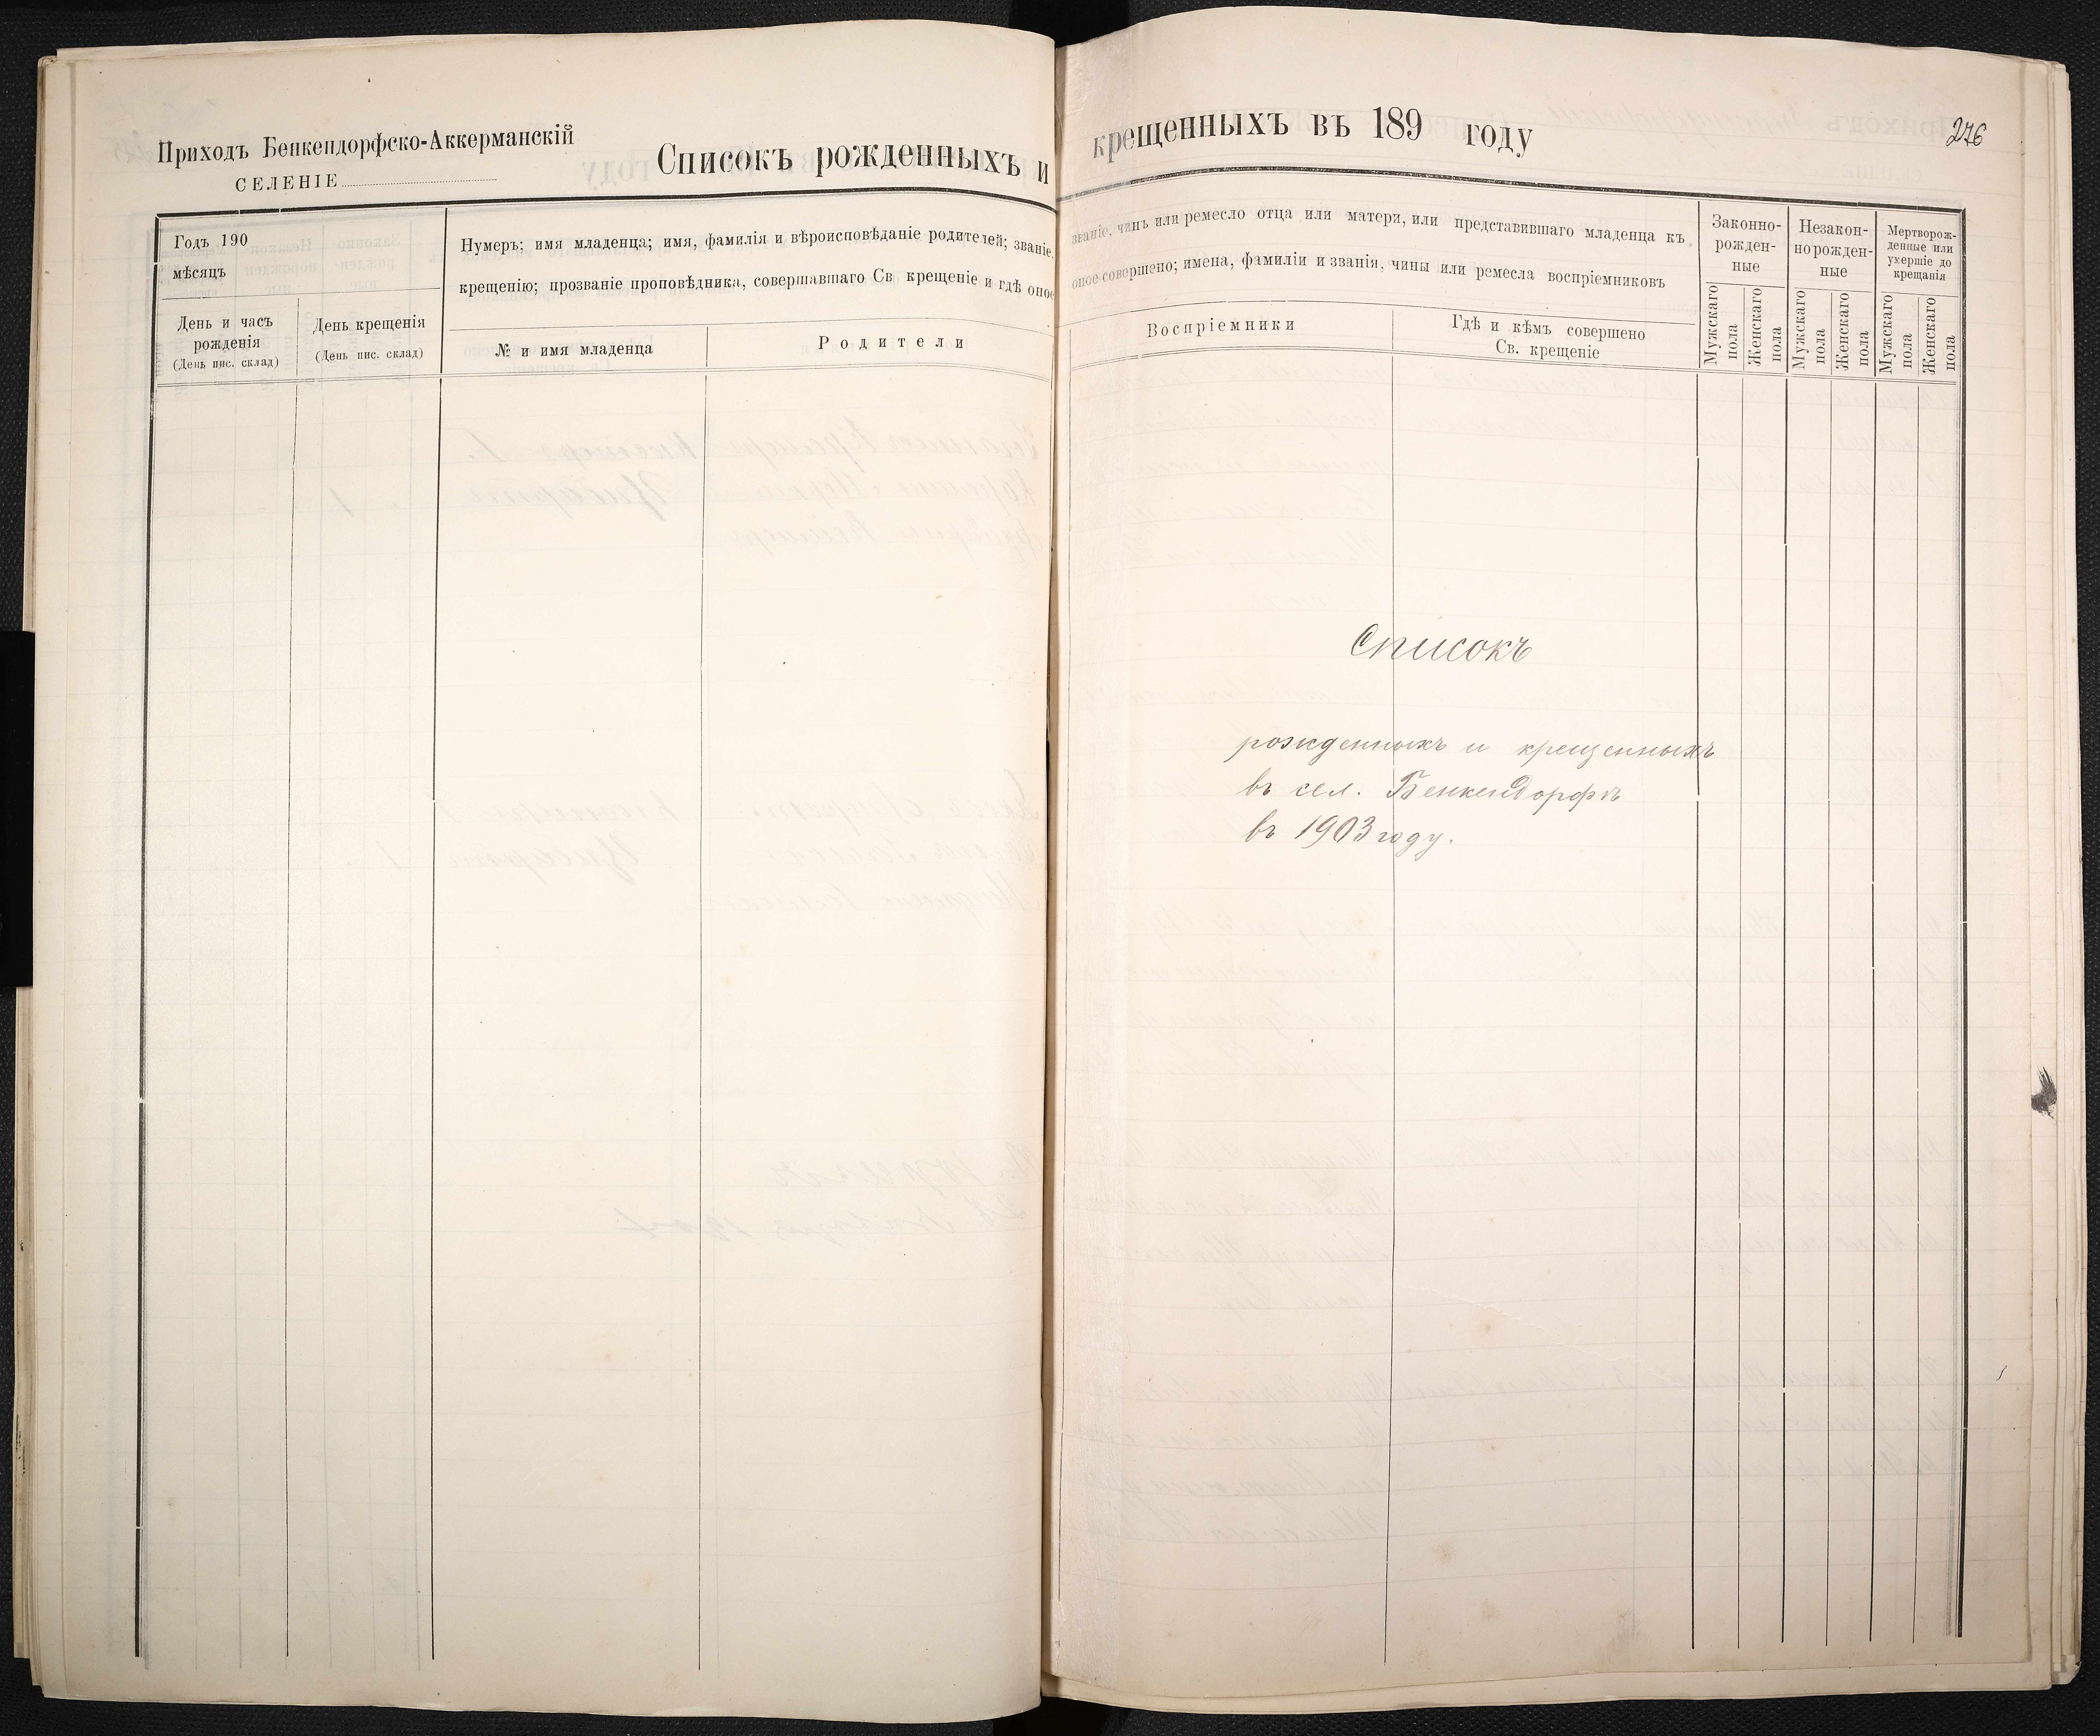 Приходъ Бенкендорфско-Аккерманскій
СЕЛЕНІЕ
Списокъ рожденныхъ и крещенныхъ въ 189 году
276
Годъ 190
мѣсяцъ
День и часъ
рожденія
(День пис. склад)
День крещенія
(День пис. склад)
Нумеръ; имя младенца; имя, фамилія и вѣроисповѣданіе родителей; званіе,
крещенію; прозваніе проповѣдника, совершавшаго Св крещеніе и гдѣ оное
№ и имя младенца
Родители
званіе, чинъ или ремесло отца или матери, или представившаго младенца къ
оное совершено; имена, фамиліи и званія, чины или ремесла воспріемниковъ
Воспріемники
Гдѣ и кѣмъ совершено
Св. крещеніе
Законно-
рожден-
ные
Незакон-
норожден-
ные
Мертворож-
денные или
умершіе до
крещанія
Мужскаго
пола
Женскаго
пола
Мужскаго
пола
Женскаго
пола
Мужскаго
пола
Женскаго
пола
Списокъ
рожденныхъ и крещенныхъ
въ сел. Бенкендорфъ
въ 1903 году.